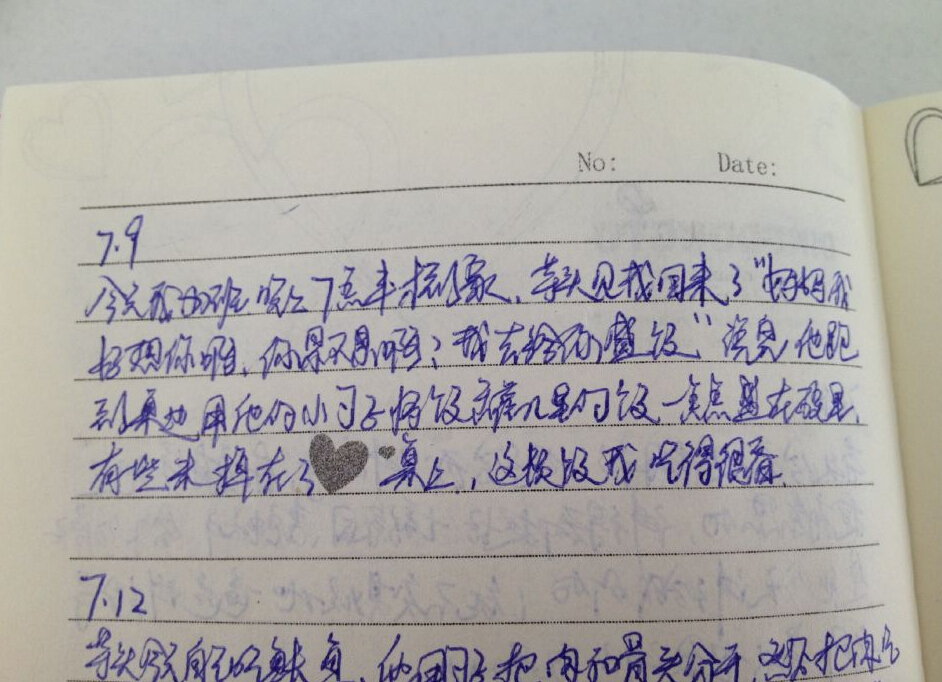 No: Date:
7.9
今天我加班晚上7点半才到家,等头见我回来了"妈妈我
好想你啊,你累不累啊?我去给你盛饭"说完他跑
到桌边用他的小勺子将饭 里的饭一点点盛在碗里,
有些米掉在了桌上,这顿饭我吃得很香.
7.12
自己吃 鱼,他用 子把肉和骨头分开,这 把肉